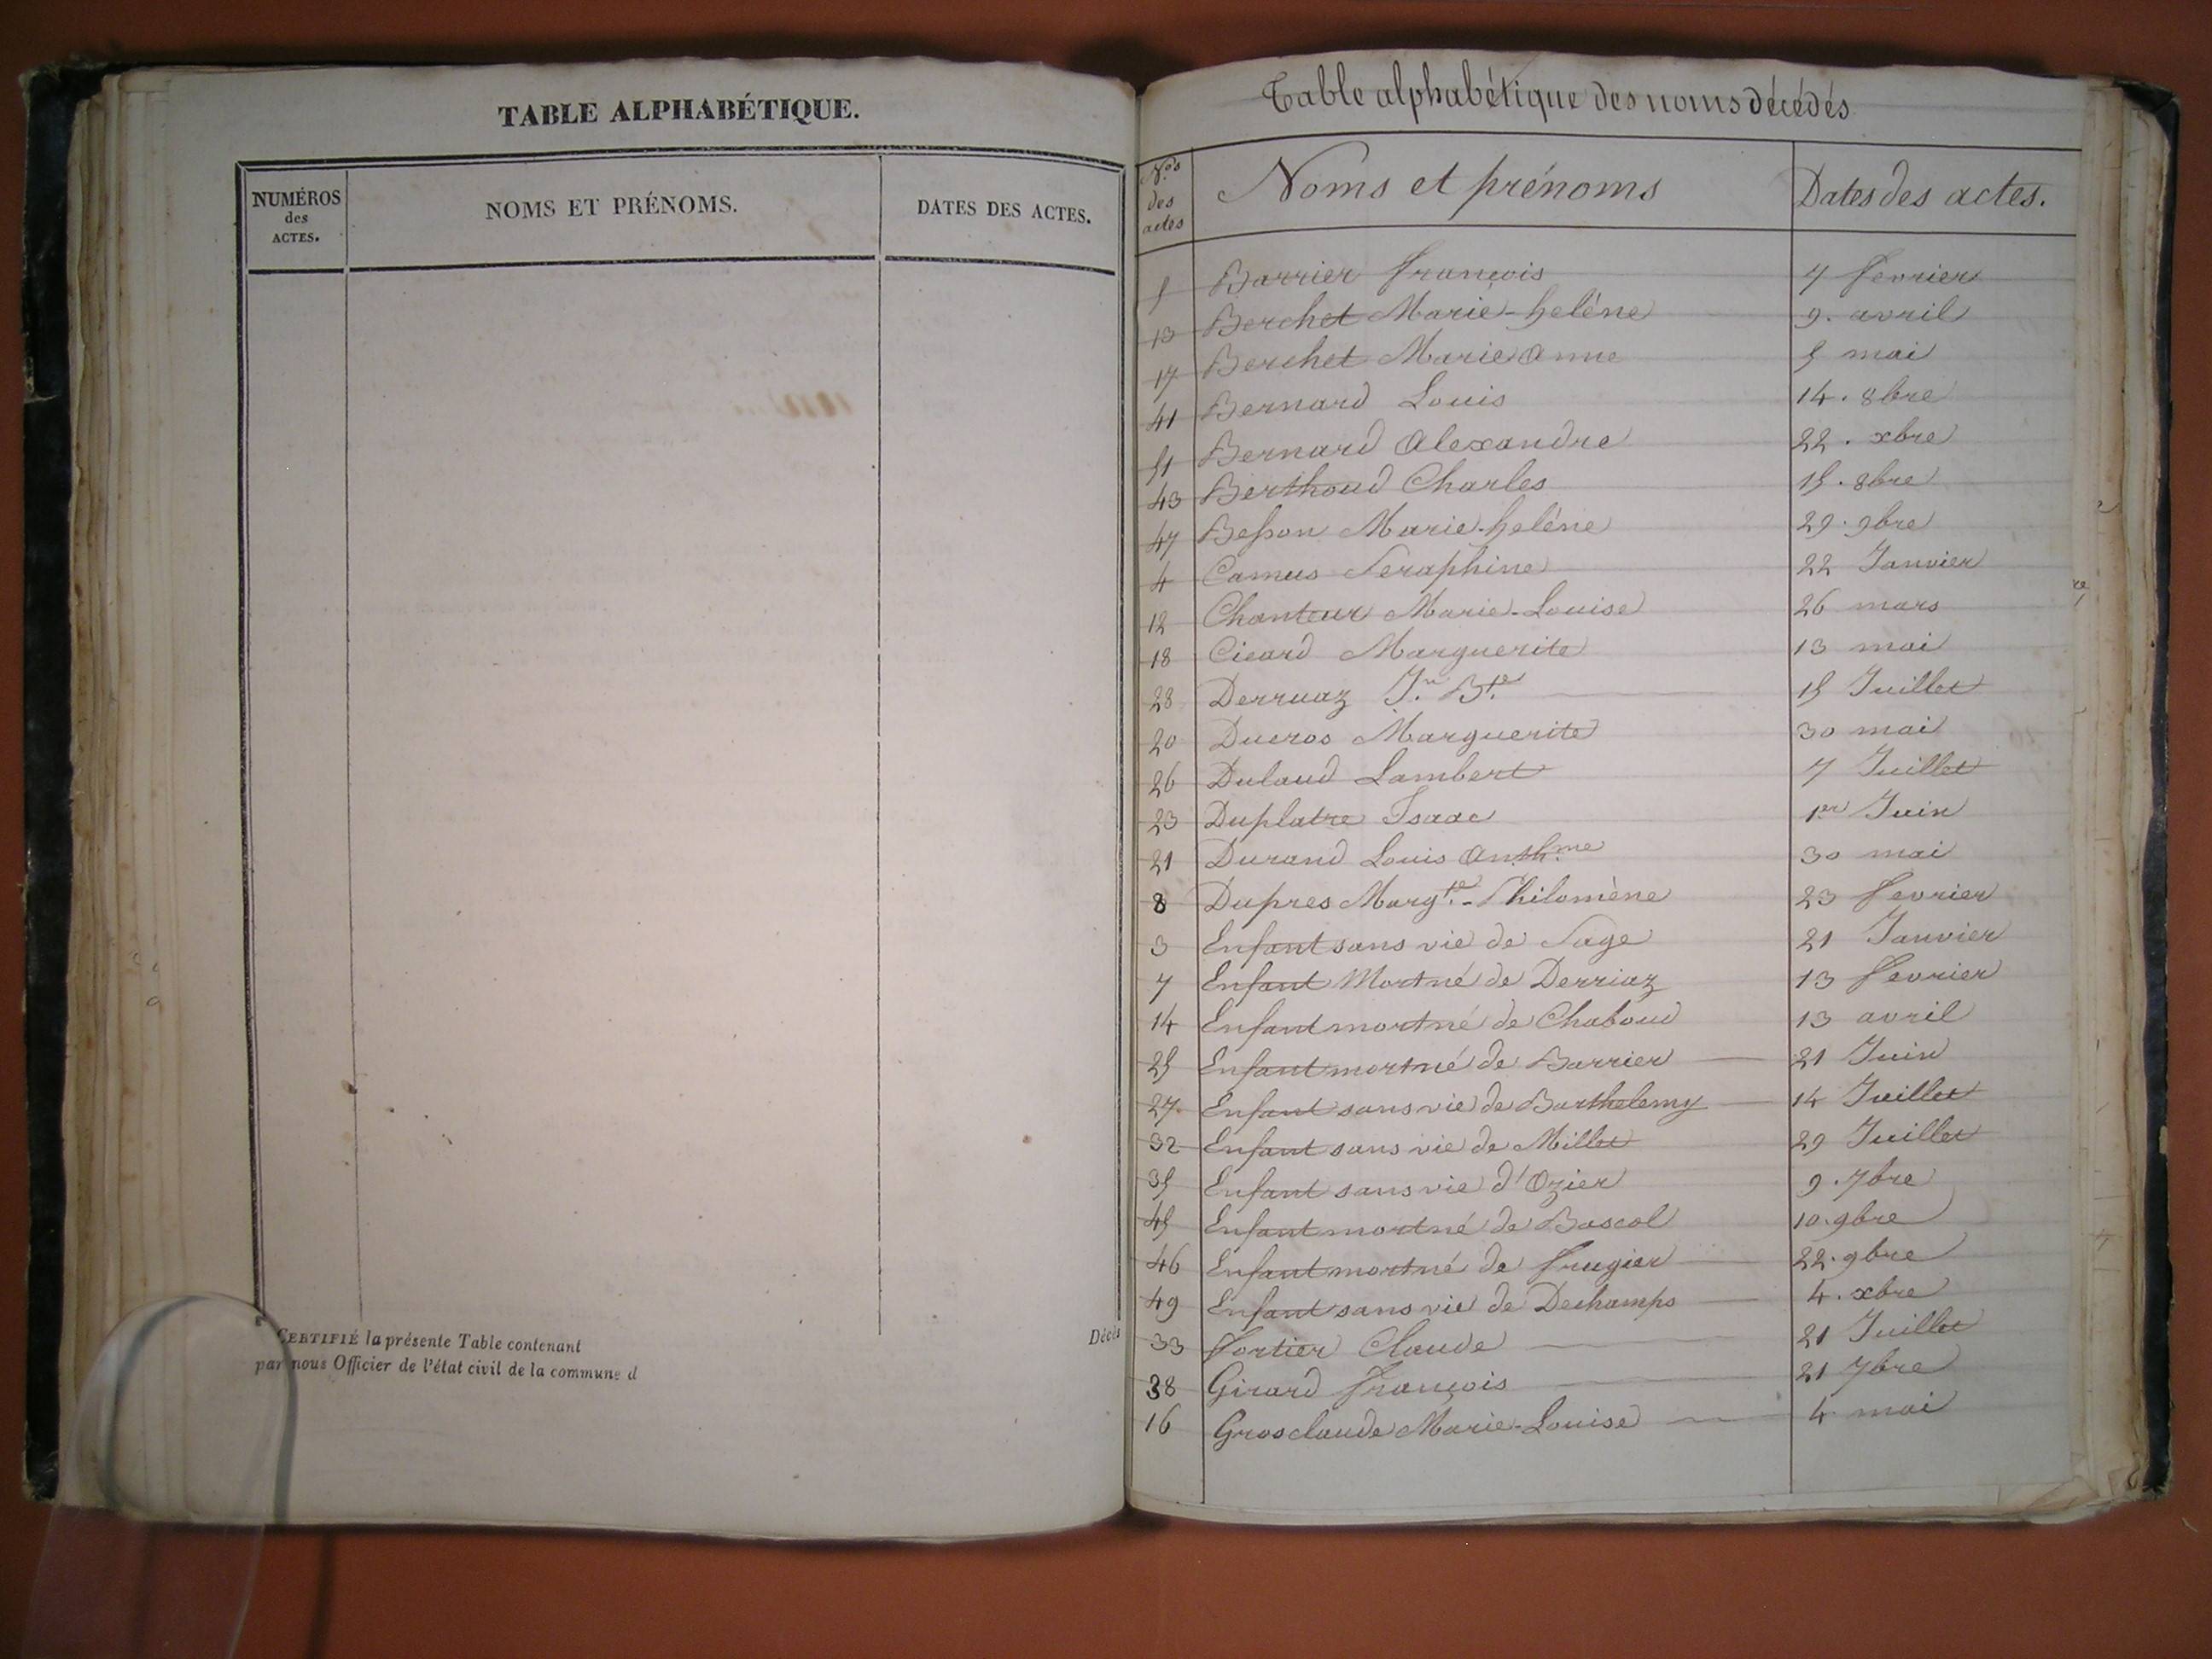 TABLE ALPHABÉTIQUE.
NUMÉROS des ACTES.
NOMS ET PRÉNOMS.
DATES DES ACTES.
CERTIFIÉ la présente Table contenant
Décès
par nous Officier de l'état civil de la commune d
Table alphabétique des noms décédés
Nos des actes
Noms et prénoms
Dates des actes.
5 Barrier françois 7 fevrier
13 Berchet Marie-heléne 9. avril
17 Berchet Marie Anne 5 mai
41 Bernard Louis 14. 8bre
51 Bernard Alexandre 22. xbre
43 Berthoud Charles 15. 8bre
47 Besson Marie-heléne 29. 9bre
4 Camus Seraphine 22 Janvier
12 Chanteur Marie-Louise 26 mars
18 Cicard Marguerite 13 mai
28 Derruaz Jn Bte 15 Juillet
20 Ducros Marguerite 30 mai
26 Dulaud Lambert 7 Juillet
23 Duplatre Isaac 1er Juin
21 Durand Louis Anthme 30 mai
8 Dupres Margte-Philomène 23 fevrier
3 Enfant sans vie de Sage 21 Janvier
7 Enfant Mort né de Derriaz 13 fevrier
14 Enfant mort né de Chaboud 13 avril
25 Enfant mort né de Barrier 21 Juin
27 Enfant sans vie de Barthelemy 14 Juillet
32 Enfant sans vie de Millet 29 Juillet
35 Enfant sans vie d'Ozier 9. 7bre
45 Enfant mort né de Bascol 10. 9bre
46 Enfant mort né de frugier 22. 9bre
49 Enfant sans vie de Dechamps 4. xbre
33 fortier Claude 21 Juillet
38 Girard françois 21 7bre
16 Grosclaude Marie-Louise 4 mai